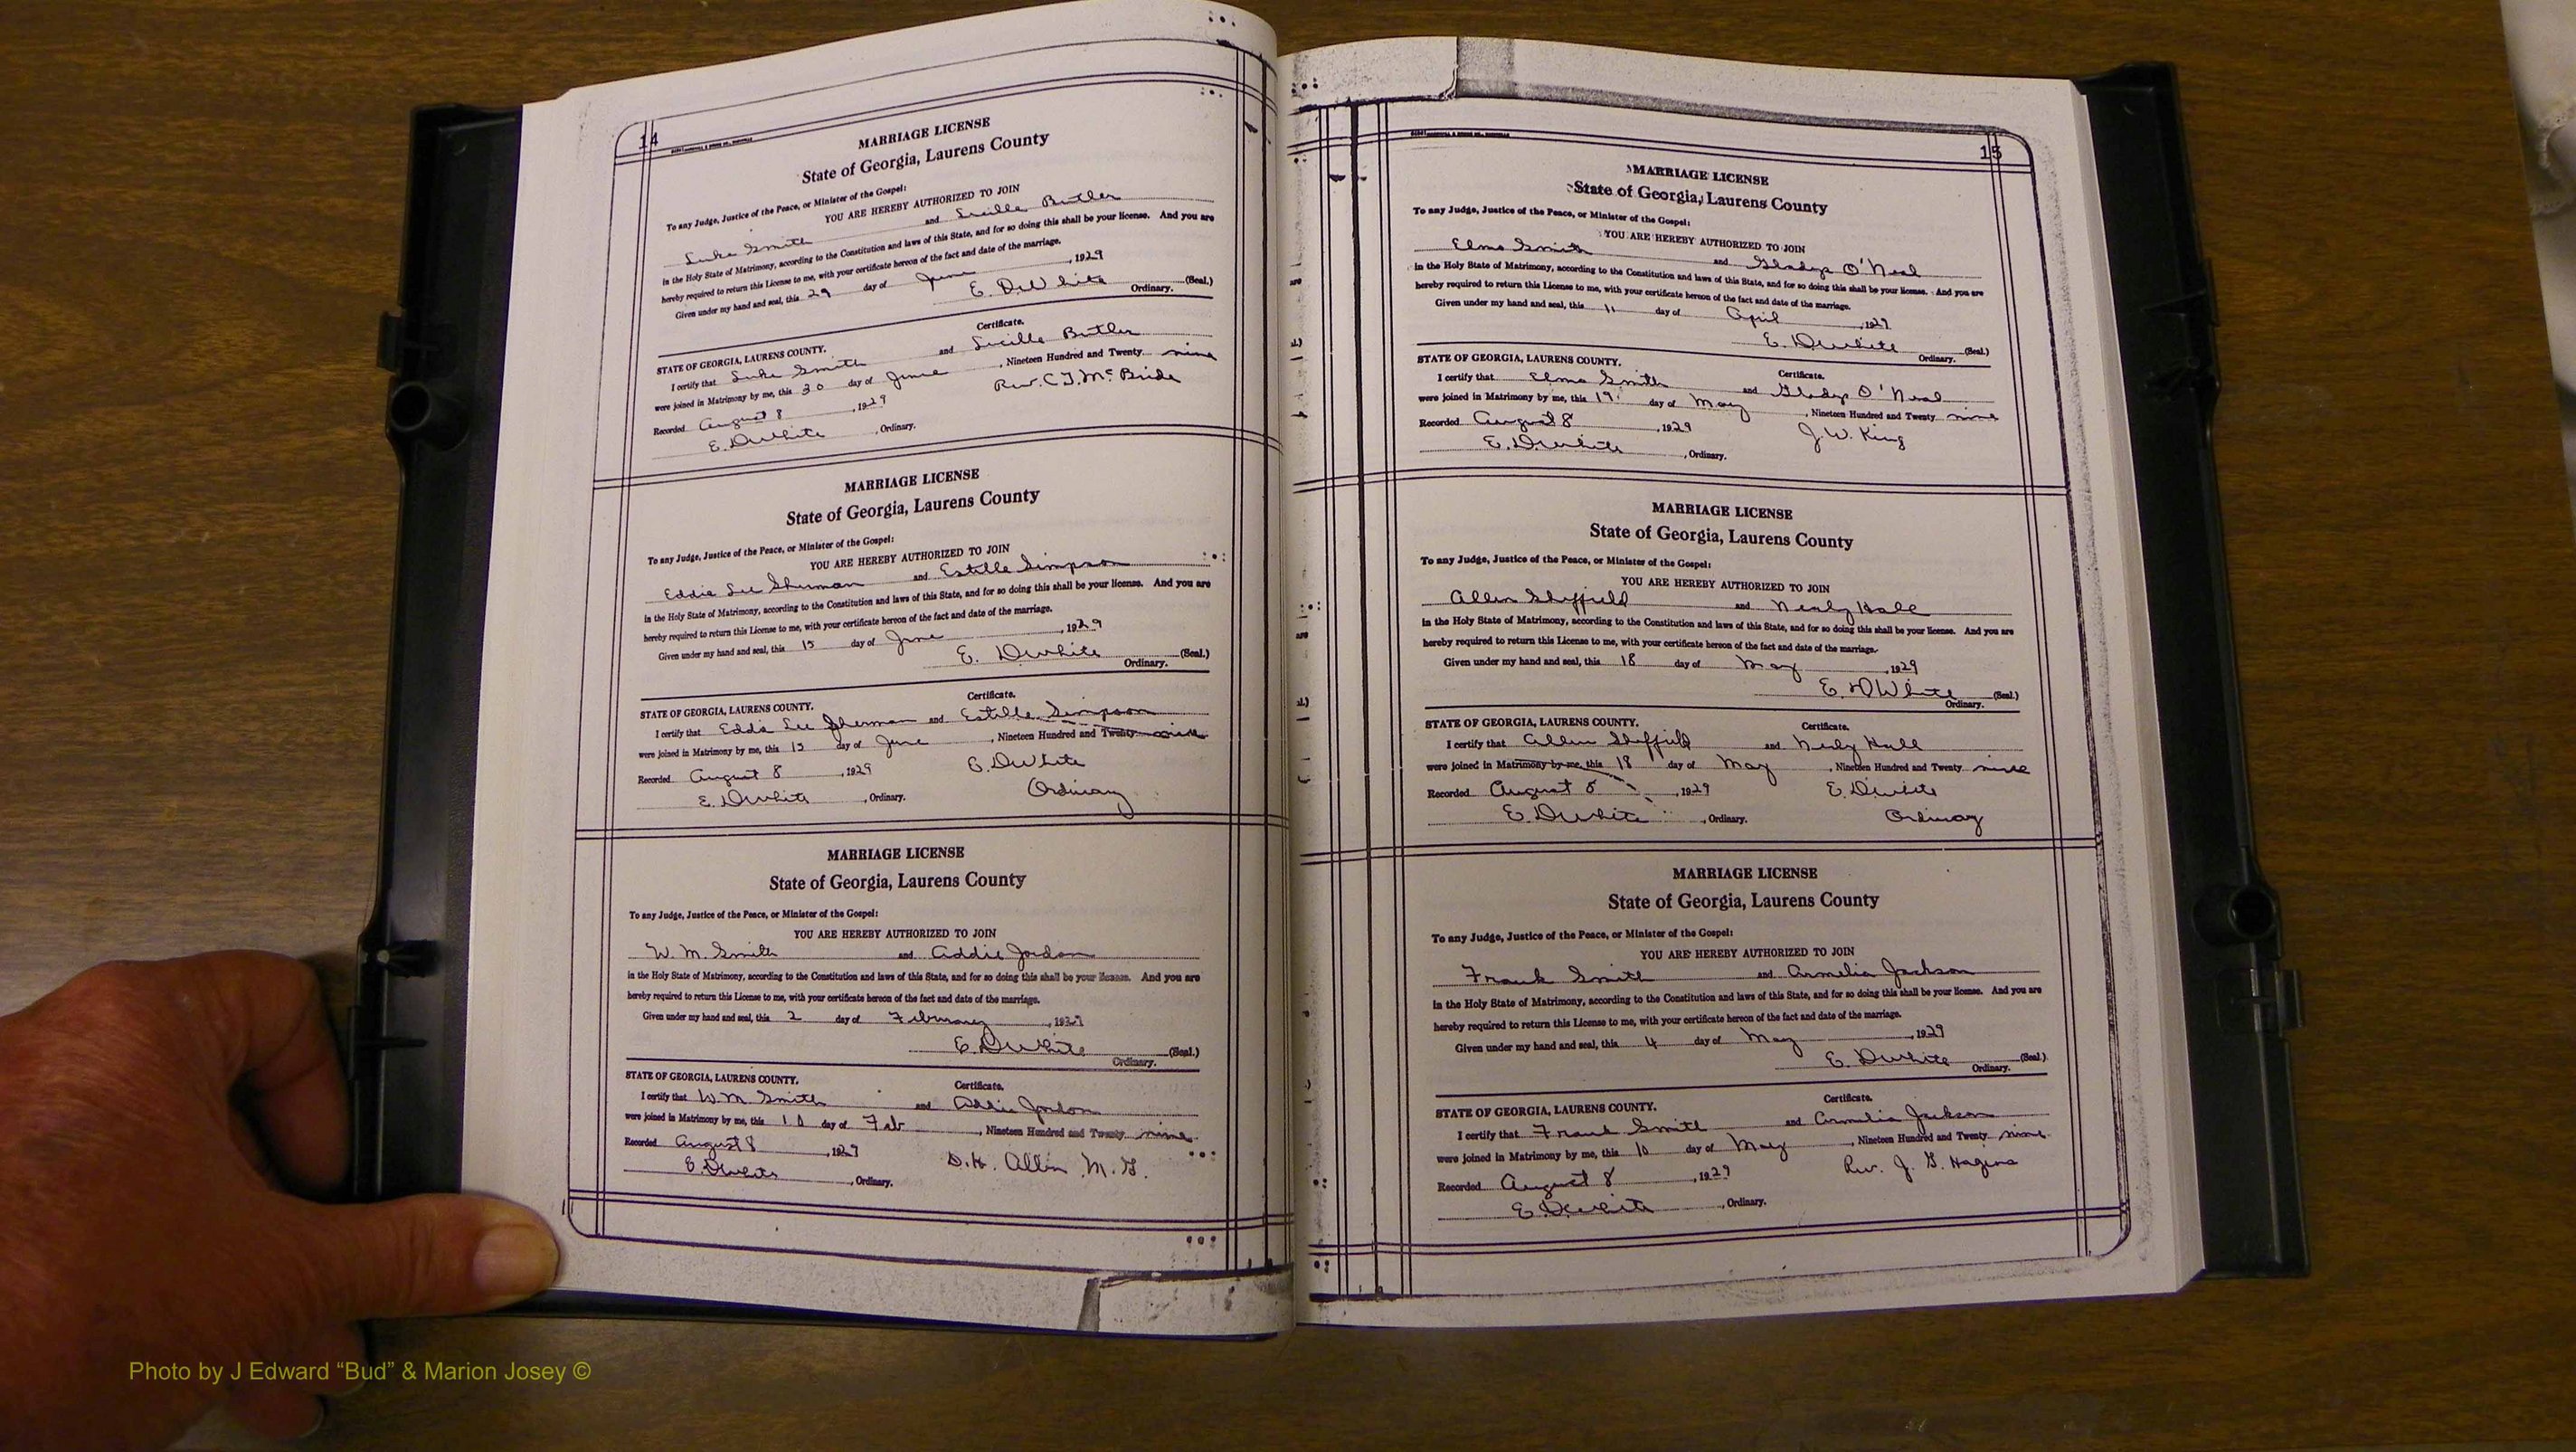 14
MARRIAGE LICENSE
State of Georgia, Laurens County
To any Judge, Justice of the Peace, or Minister of the Gospel:
YOU ARE HEREBY AUTHORIZED TO JOIN
Luke Smith and Lucille Butler
in the Holy State of Matrimony, according to the Constitution and laws of this State, and for so doing this shall be your license. And you are
hereby required to return this License to me, with your certificate hereon of the fact and date of the marriage.
Given under my hand and seal, this 29 day of June, 1929
E. D White (Seal.)
Ordinary.
Certificate.
STATE OF GEORGIA, LAURENS COUNTY.
I certify that Luke Smith and Lucille Butler
were joined in Matrimony by me, this 30 day of June, Nineteen Hundred and Twenty nine
Recorded August 8, 1929 Rev. C. T. McBride
E. D White, Ordinary.
MARRIAGE LICENSE
State of Georgia, Laurens County
To any Judge, Justice of the Peace, or Minister of the Gospel:
YOU ARE HEREBY AUTHORIZED TO JOIN
Eddie Lee Sherman and Estille Simpson
in the Holy State of Matrimony, according to the Constitution and laws of this State, and for so doing this shall be your license. And you are
hereby required to return this License to me, with your certificate hereon of the fact and date of the marriage.
Given under my hand and seal, this 15 day of June, 1929
E. D White (Seal.)
Ordinary.
Certificate.
STATE OF GEORGIA, LAURENS COUNTY.
I certify that Eddie Lee Sherman and Estille Simpson
were joined in Matrimony by me, this 15 day of June, Nineteen Hundred and Twenty nine
Recorded August 8, 1929 E. D White
E. D White, Ordinary. Ordinary
MARRIAGE LICENSE
State of Georgia, Laurens County
To any Judge, Justice of the Peace, or Minister of the Gospel:
YOU ARE HEREBY AUTHORIZED TO JOIN
W. M. Smith and Addie Jordon
in the Holy State of Matrimony, according to the Constitution and laws of this State, and for so doing this shall be your license. And you are
hereby required to return this License to me, with your certificate hereon of the fact and date of the marriage.
Given under my hand and seal, this 2 day of February, 1929
E. D White (Seal.)
Ordinary.
Certificate.
STATE OF GEORGIA, LAURENS COUNTY.
I certify that W. M. Smith and Addie Jordon
were joined in Matrimony by me, this 10 day of Feb, Nineteen Hundred and Twenty nine
Recorded August 8, 1929 D. H. Allen M. G.
E. D White, Ordinary.
15
MARRIAGE LICENSE
State of Georgia, Laurens County
To any Judge, Justice of the Peace, or Minister of the Gospel:
YOU ARE HEREBY AUTHORIZED TO JOIN
Elmo Smith and Gladys O'Neal
in the Holy State of Matrimony, according to the Constitution and laws of this State, and for so doing this shall be your license. And you are
hereby required to return this License to me, with your certificate hereon of the fact and date of the marriage.
Given under my hand and seal, this 11 day of April, 1929
E. D White (Seal.)
Ordinary.
Certificate.
STATE OF GEORGIA, LAURENS COUNTY.
I certify that Elmo Smith and Gladys O'Neal
were joined in Matrimony by me, this 19 day of May, Nineteen Hundred and Twenty nine
Recorded August 8, 1929 J. W. King
E. D White, Ordinary.
MARRIAGE LICENSE
State of Georgia, Laurens County
To any Judge, Justice of the Peace, or Minister of the Gospel:
YOU ARE HEREBY AUTHORIZED TO JOIN
Allen Sheffield and Nealy Hall
in the Holy State of Matrimony, according to the Constitution and laws of this State, and for so doing this shall be your license. And you are
hereby required to return this License to me, with your certificate hereon of the fact and date of the marriage.
Given under my hand and seal, this 18 day of May, 1929
E. D White (Seal.)
Ordinary.
Certificate.
STATE OF GEORGIA, LAURENS COUNTY.
I certify that Allen Sheffield and Nealy Hall
were joined in Matrimony by me, this 18 day of May, Nineteen Hundred and Twenty nine
Recorded August 8, 1929 E. D White
E. D White, Ordinary. Ordinary
MARRIAGE LICENSE
State of Georgia, Laurens County
To any Judge, Justice of the Peace, or Minister of the Gospel:
YOU ARE HEREBY AUTHORIZED TO JOIN
Frank Smith and Armelia Jackson
in the Holy State of Matrimony, according to the Constitution and laws of this State, and for so doing this shall be your license. And you are
hereby required to return this License to me, with your certificate hereon of the fact and date of the marriage.
Given under my hand and seal, this 4 day of May, 1929
E. D White (Seal.)
Ordinary.
Certificate.
STATE OF GEORGIA, LAURENS COUNTY.
I certify that Frank Smith and Armelia Jackson
were joined in Matrimony by me, this 10 day of May, Nineteen Hundred and Twenty nine
Recorded August 8, 1929 Rev. J. G. Hagins
E. D White, Ordinary.
Photo by J Edward “Bud” & Marion Josey ©